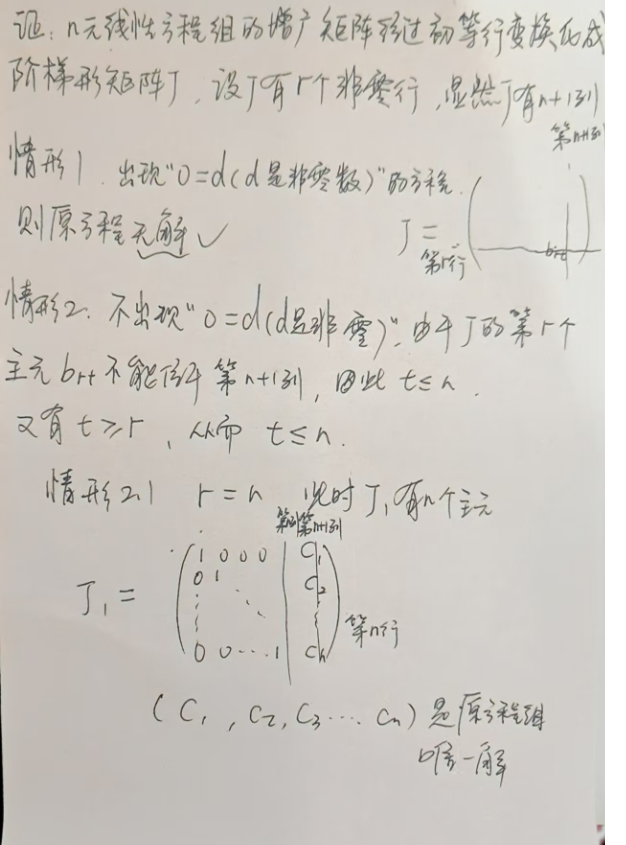 证: n元线性方程组的增广矩阵经过初等行变换化成
阶梯形矩阵J, 设J有r个非零行, 显然J有n+1列
情形1. 出现"0=d(d是非零数)"的方程.
则原方程无解✓
第n+1列
J=
第r行
brt
情形2. 不出现"0=d(d是非零)". 由于J的第r个
主元brt不能位于第n+1列, 因此 t≤n.
又有 t≥r, 从而 t≤n.
情形2.1 r=n 此时J₁有n个主元
第n列 第n+1列
J₁ = ( 1 0 0 0 | C₁
0 1 C₂
⋮ ⋱ ⋮
0 0 ⋯ 1 | Cn ) 第n行
(C₁, C₂, C₃ ⋯ Cn) 是原方程组
唯一解